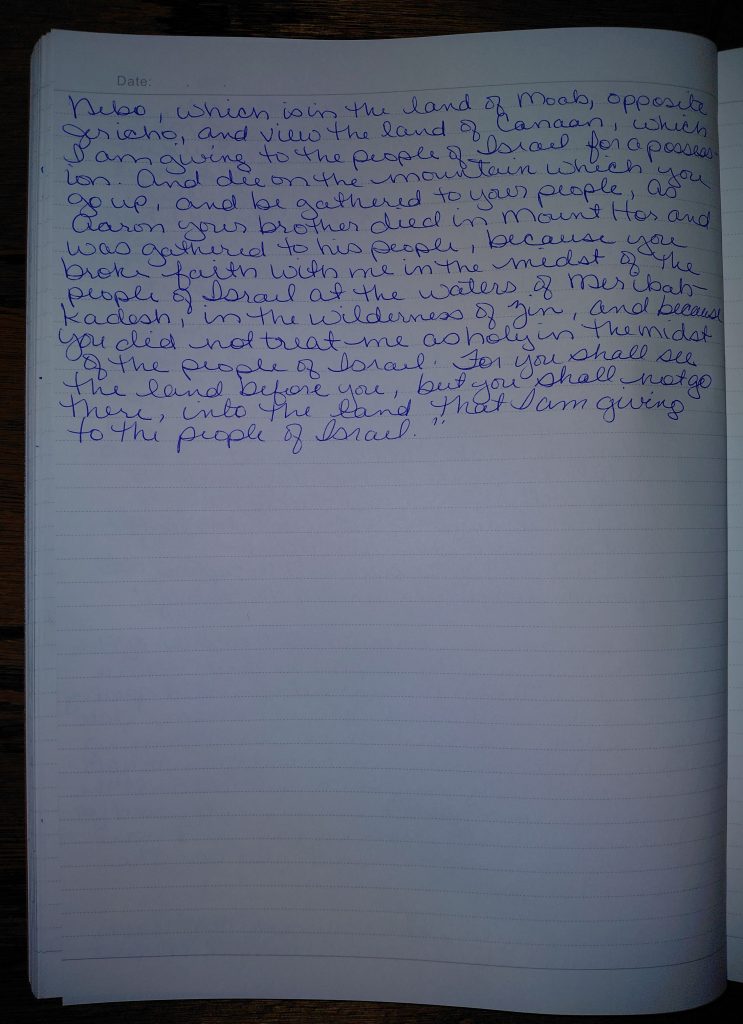 Date:
Nebo, which is in the land of Moab, opposite
Jericho, and view the land of Canaan, which
I am giving to the people of Israel for a possess-
ion. And die on the mountain which you
go up, and be gathered to your people, as
Aaron your brother died in Mount Hor and
was gathered to his people, because you
broke faith with me in the midst of the
people of Israel at the waters of Meribah-
Kadesh, in the wilderness of Zin, and because
you did not treat me as holy in the midst
of the people of Israel. For you shall see
the land before you, but you shall not go
there, into the land that I am giving
to the people of Israel."